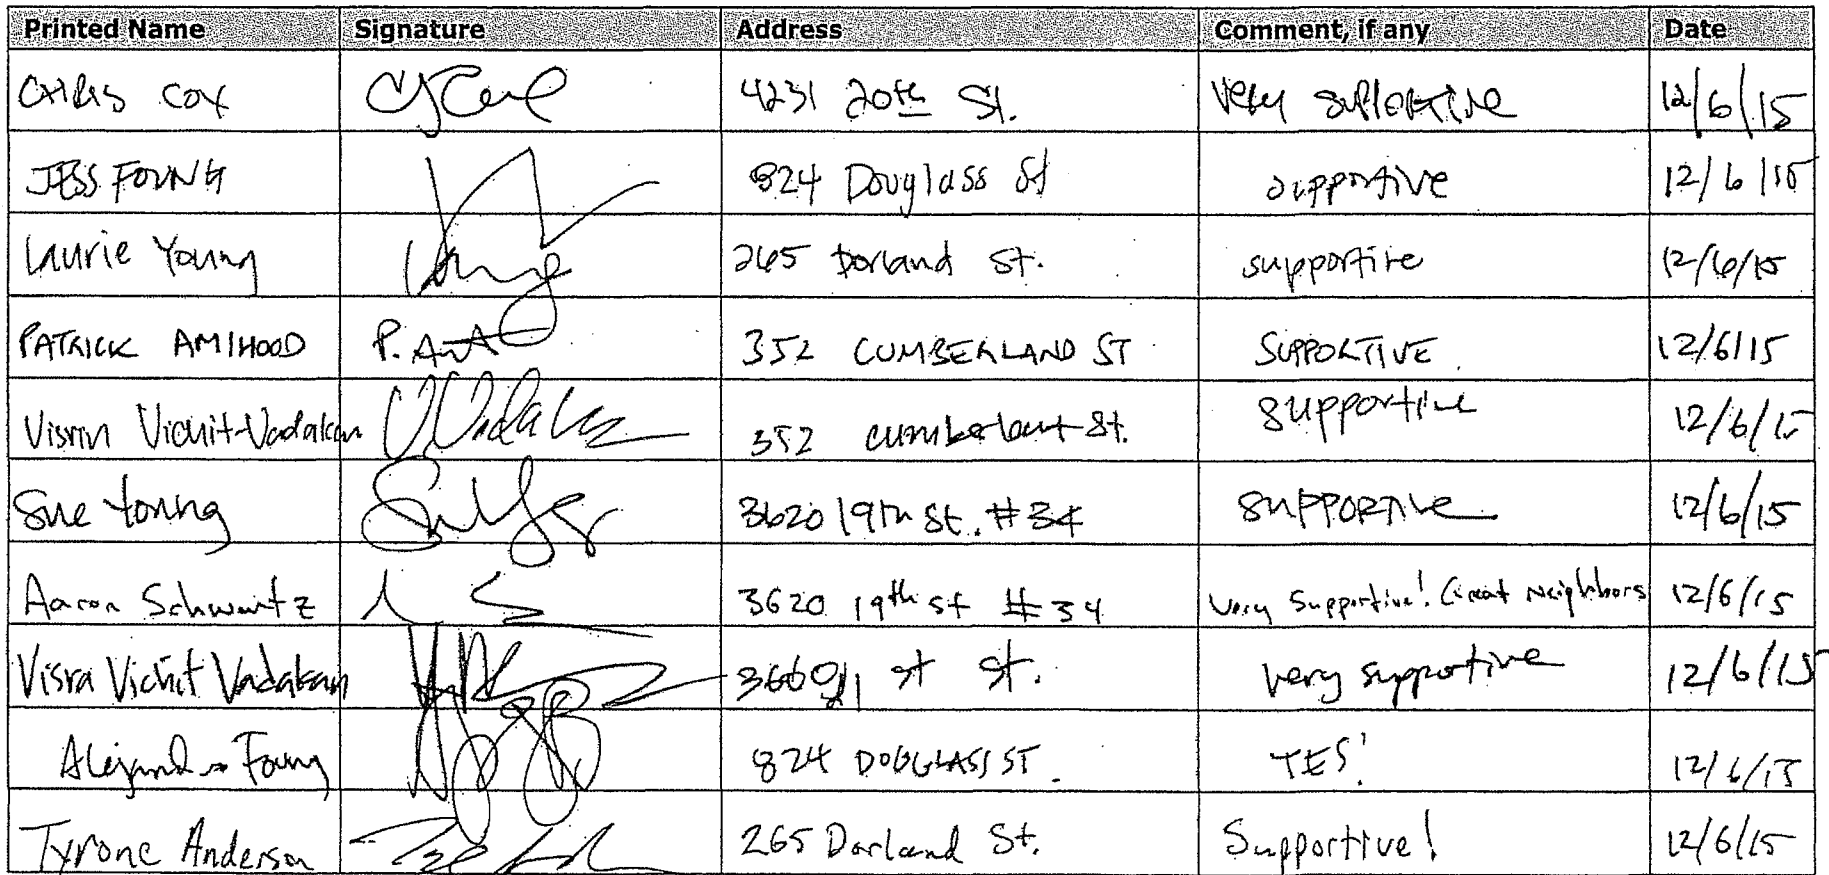 Printed Name Signature Address Comment, if any Date
CHRIS COX 4231 20th St. Very supportive 12/6/15
JESS FOUNG 824 Douglass St supportive 12/6/15
Laurie Young 265 Dorland St. supportive 12/6/15
PATRICK AMIHOOD P. 352 CUMBERLAND ST SUPPORTIVE 12/6/15
Visrin Vichit-Vadakan 352 St. supportive 12/6/15
Sue Young 3620 19th St. #34 SUPPORTIVE 12/6/15
Aaron Schwartz 3620 19th St #34 Very Supportive! Great Neighbors 12/6/15
Visra Vichit Vadakan 21 st St. very supportive 12/6/15
Foung 824 DOUGLASS ST. YES! 12/6/15
Tyrone Anderson 265 Dorland St. Supportive! 12/6/15